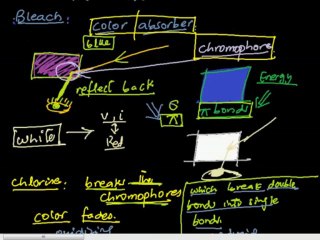 Bleach:
color absorber
blue
chromophore
reflect back
Energy
π bonds
6
π
white → v, i
Red
Chlorine: breaks the
chromophores
color fades.
which break double
bonds into single
bonds.
oxidizing